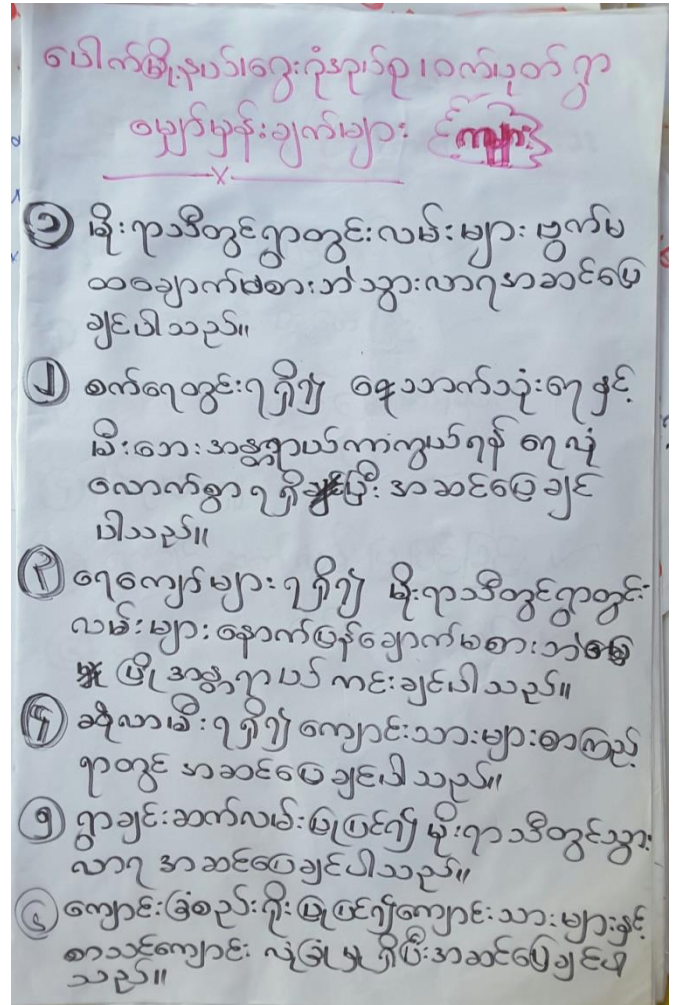 ပေါက်မြို့နယ်၊ရွေးဂုံအုပ်စု၊ဝက်ပုတ်ရွာ
မျှော်မှန်းချက်များ (ကျား)
၁ မိုးရာသီတွင်ရွာတွင်းလမ်းများ ဗွက်မ
ထချောက်မစားဘဲသွားလာရအဆင်ပြေ
ချင်ပါသည်။
၂ စက်ရေတွင်းရရှိ၍ နေ့သောက်သုံးရေနှင့်
မီးဘေးအန္တရာယ်ကာကွယ်ရန် ရေလုံ
လောက်စွာရရှိပြီး အဆင်ပြေချင်
ပါသည်။
၃ ရေကျော်များရရှိ၍ မိုးရာသီတွင်ရွာတွင်း
လမ်းများနောက်ပြန်ချောက်မစားဘဲ
မြို အန္တရာယ် ကင်းချင်ပါသည်။
၄ ဆိုလာမီးရရှိ၍ ကျောင်းသားများစာကြည့်
ရာတွင် အဆင်ပြေချင်ပါသည်။
၅ ရွာချင်းဆက်လမ်းပြုပြင်၍ မိုးရာသီတွင်သွား
လာရ အဆင်ပြေချင်ပါသည်။
၆ ကျောင်းခြံစည်းရိုးပြုပြင်၍ကျောင်းသားများနှင့်
စာသင်ကျောင်း လုံခြုံမှုရှိပြီးအဆင်ပြေချင်ပါ
သည်။